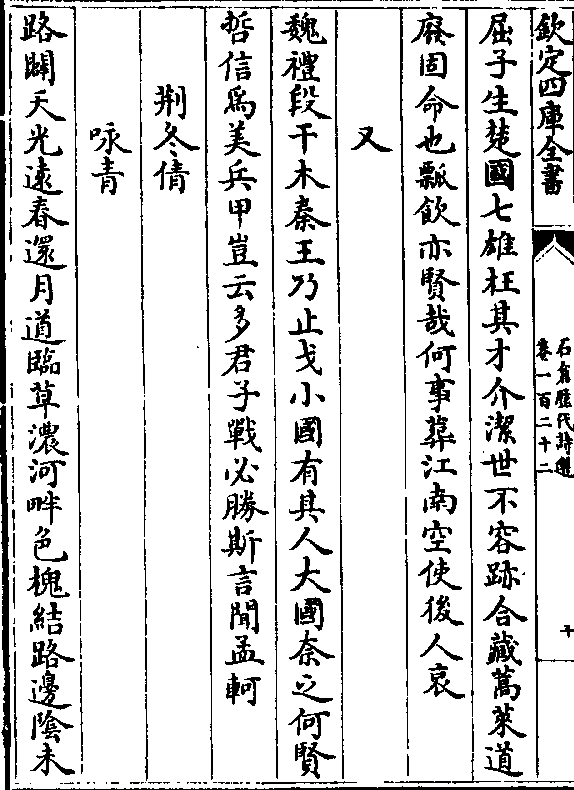 欽定四庫全書
石倉歷代詩選
卷一百二十二
十
屈子生楚國七雄枉其才介潔世不容跡合藏蒿萊道
廢固命也瓢飲亦賢哉何事葬江南空使後人哀
又
魏禮段干木秦王乃止戈小國有其人大國奈之何賢
哲信爲美兵甲豈云多君子戰必勝斯言聞孟軻
荆冬倩
咏青
路闢天光遠春還月道臨草濃河畔色槐結路邊隂未